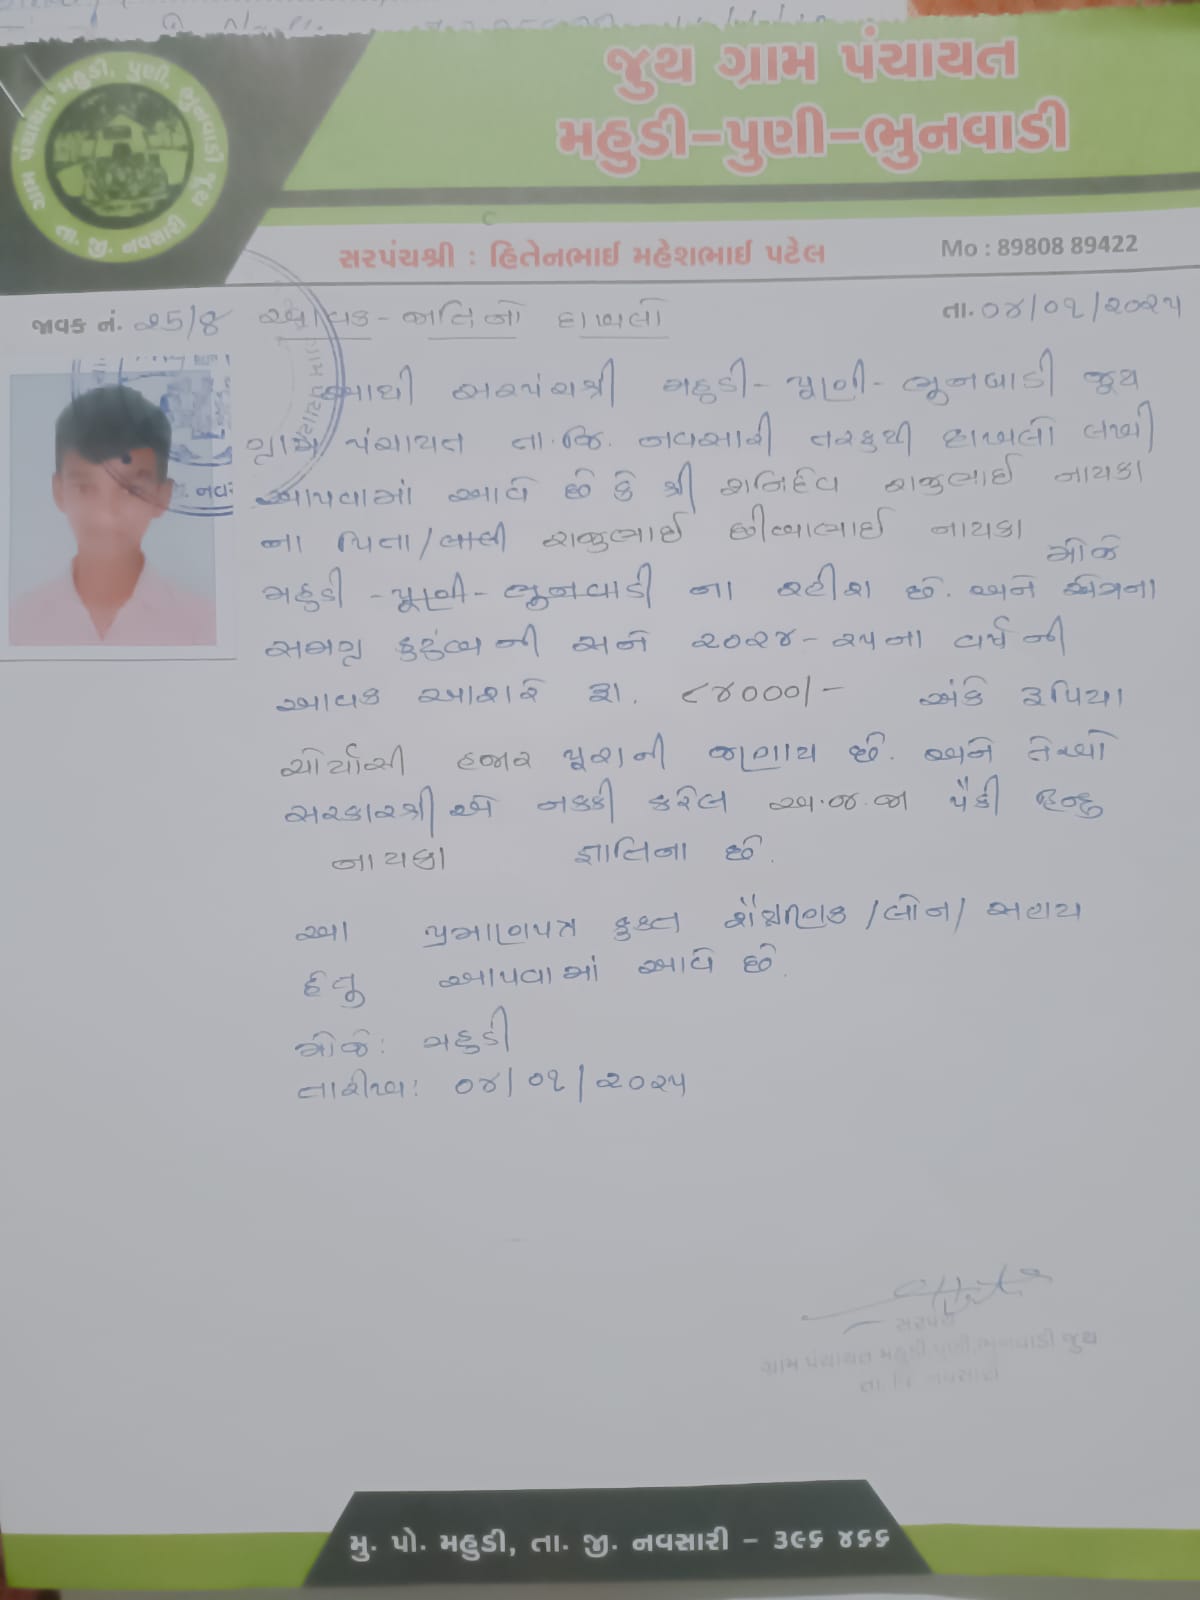 જુથ ગ્રામ પંચાયત
મહુડી–પુણી–ભુનવાડી
ગ્રામ પંચાયત મહુડી, પુણી, ભુનવાડી જુથ
તા. જી. નવસારી
સરપંચશ્રી : હિતેનભાઈ મહેશભાઈ પટેલ
Mo : 89808 89422
જાવક નં. ૨૫/૪
આવક - જાતિનો દાખલો
તા. ૦૪/૦૧/૨૦૨૫
આથી સરપંચશ્રી મહુડી - પૂણી - ભૂનવાડી જૂથ
ગ્રામ પંચાયત તા.જિ. નવસારી તરફથી દાખલો લખી
આપવામાં આવે છે કે શ્રી શનિદેવ રાજુભાઈ નાયકા
ના પિતા/વાલી રાજુભાઈ છીબાભાઈ નાયકા મોજે
મહુડી - પૂણી - ભૂનવાડી ના રહીશ છે. અને એમના
સમગ્ર કુટુંબ ની સને ૨૦૨૪ - ૨૫ના વર્ષ ની
આવક આશરે રૂા. ૮૪૦૦૦/- અંકે રૂપિયા
ચોર્યાસી હજાર પૂરાની જણાય છે. અને તેઓ
સરકારશ્રી એ નક્કી કરેલ અ.જ.જા પૈકી હિન્દુ
નાયકા જ્ઞાતિના છે.
આ પ્રમાણપત્ર ફક્ત શૈક્ષણિક /લોન/ સહાય
હેતુ આપવામાં આવે છે.
મોજે: મહુડી
તારીખ: ૦૪/૦૧/૨૦૨૫
સરપંચ
ગ્રામ પંચાયત મહુડી, પુણી, ભુનવાડી જુથ
તા. જિ. નવસારી
મુ. પો. મહુડી, તા. જી. નવસારી – ૩૯૬ ૪૬૬